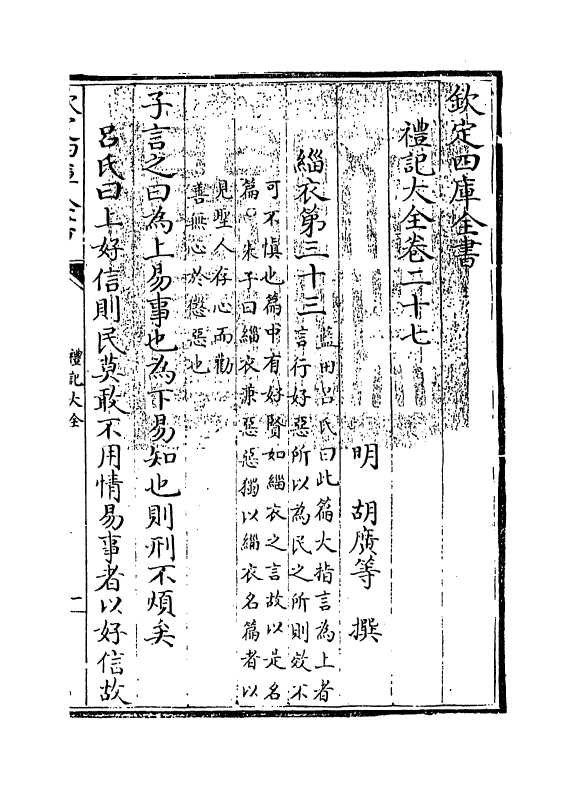 欽定四庫全書
禮記大全卷二十七
明 胡廣等 撰
緇衣第三十三藍田呂氏曰此篇大指言為上者
言行好惡所以為民之所則效不
可不慎也篇中有好賢如緇衣之言故以是名
篇○朱子曰緇衣兼惡惡獨以緇衣名篇者以
見聖人存心而勸
善無心於懲惡也
子言之曰為上易事也為下易知也則刑不煩矣
呂氏曰上好信則民莫敢不用情易事者以好信故
欽定四庫全書
禮記大全